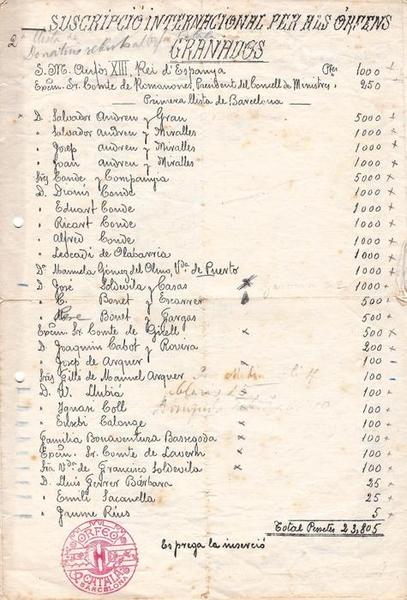 SUSCRIPCIÓ INTERNACIONAL PER ALS ORFENS
GRANADOS
S. M. Anfós XIII, Rei d'Espanya Ptes 1000
Excm. Sr. Comte de Romanones, President del Consell de Ministres 250
Primera llista de Barcelona
D. Salvador Andreu y Grau 5000
" Salvador Andreu y Miralles 1000
" Josep Andreu y Miralles 1000
" Joan Andreu y Miralles 1000
Srs Conde y Companyia 5000
D. Dionis Conde 1000
" Eduart Conde 1000
" Ricart Conde 1000
" Alfred Conde 1000
" Leocadi de Olabarria 1000
Dª Manuela Gómez del Olmo, Vda de Puerto 1000
D. José Soldevila y Casas 1000
" E. Bonet y Escarrer 500
" Bonet y Gargas 500
Excm. Sr. Comte de Güell 500
D. Joaquim Cabot y Rovira 200
" Josep de Arquer 100
Srs Fills de Manuel Arquer 100
D. W. Llubiá 100
" Ignasi Coll 100
" Eusebi Calonge 100
Familia Bonaventura Bassegoda 100
Excm. Sr. Comte de Lavern 100
Sra Vda de Francisco Soldevila 100
D. Lluís Ferrer Bárbara 25
" Emili Sacanella 25
" Jaume Rius 5
Total Pesetes 23,805
Es prega la inserció
ORFEÓ CATALÀ
BARCELONA